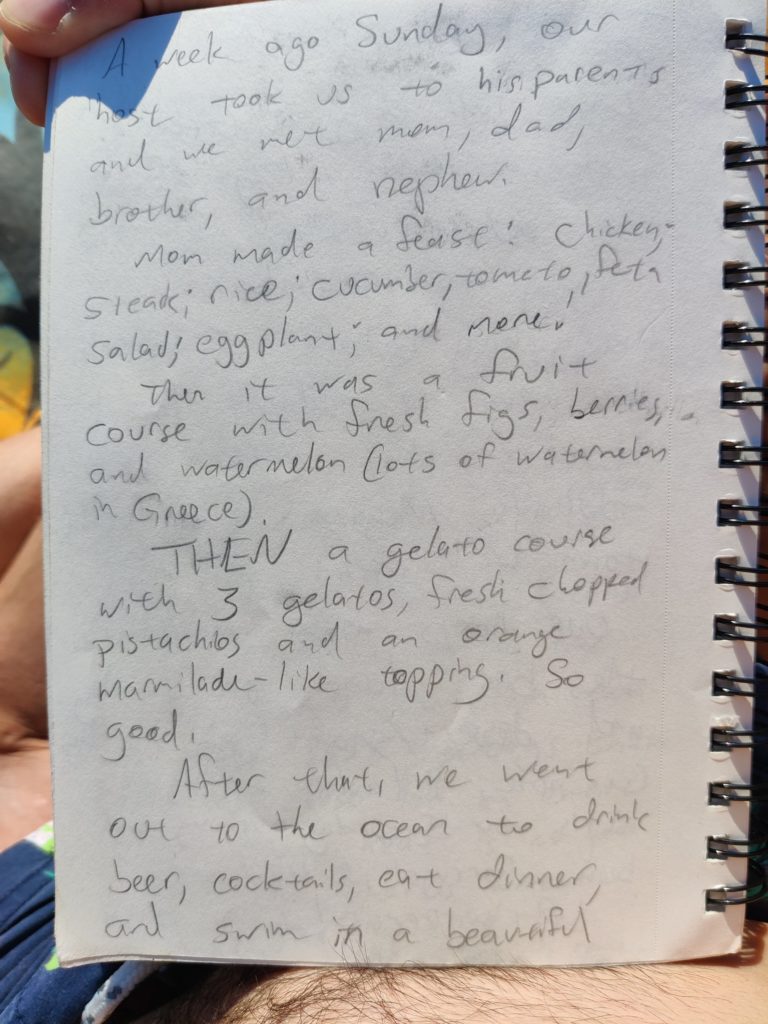 A week ago Sunday, our
host took us to his parents
and we met mom, dad,
brother, and nephew.
Mom made a feast: chicken;
steak; rice; cucumber, tomato, feta
salad; eggplant; and more.
Then it was a fruit
course with fresh figs, berries,
and watermelon (lots of watermelon
in Greece).
THEN a gelato course
with 3 gelatos, fresh chopped
pistachios and an orange
marmilade-like topping. So
good.
After that, we went
out to the ocean to drink
beer, cocktails, eat dinner,
and swim in a beautiful